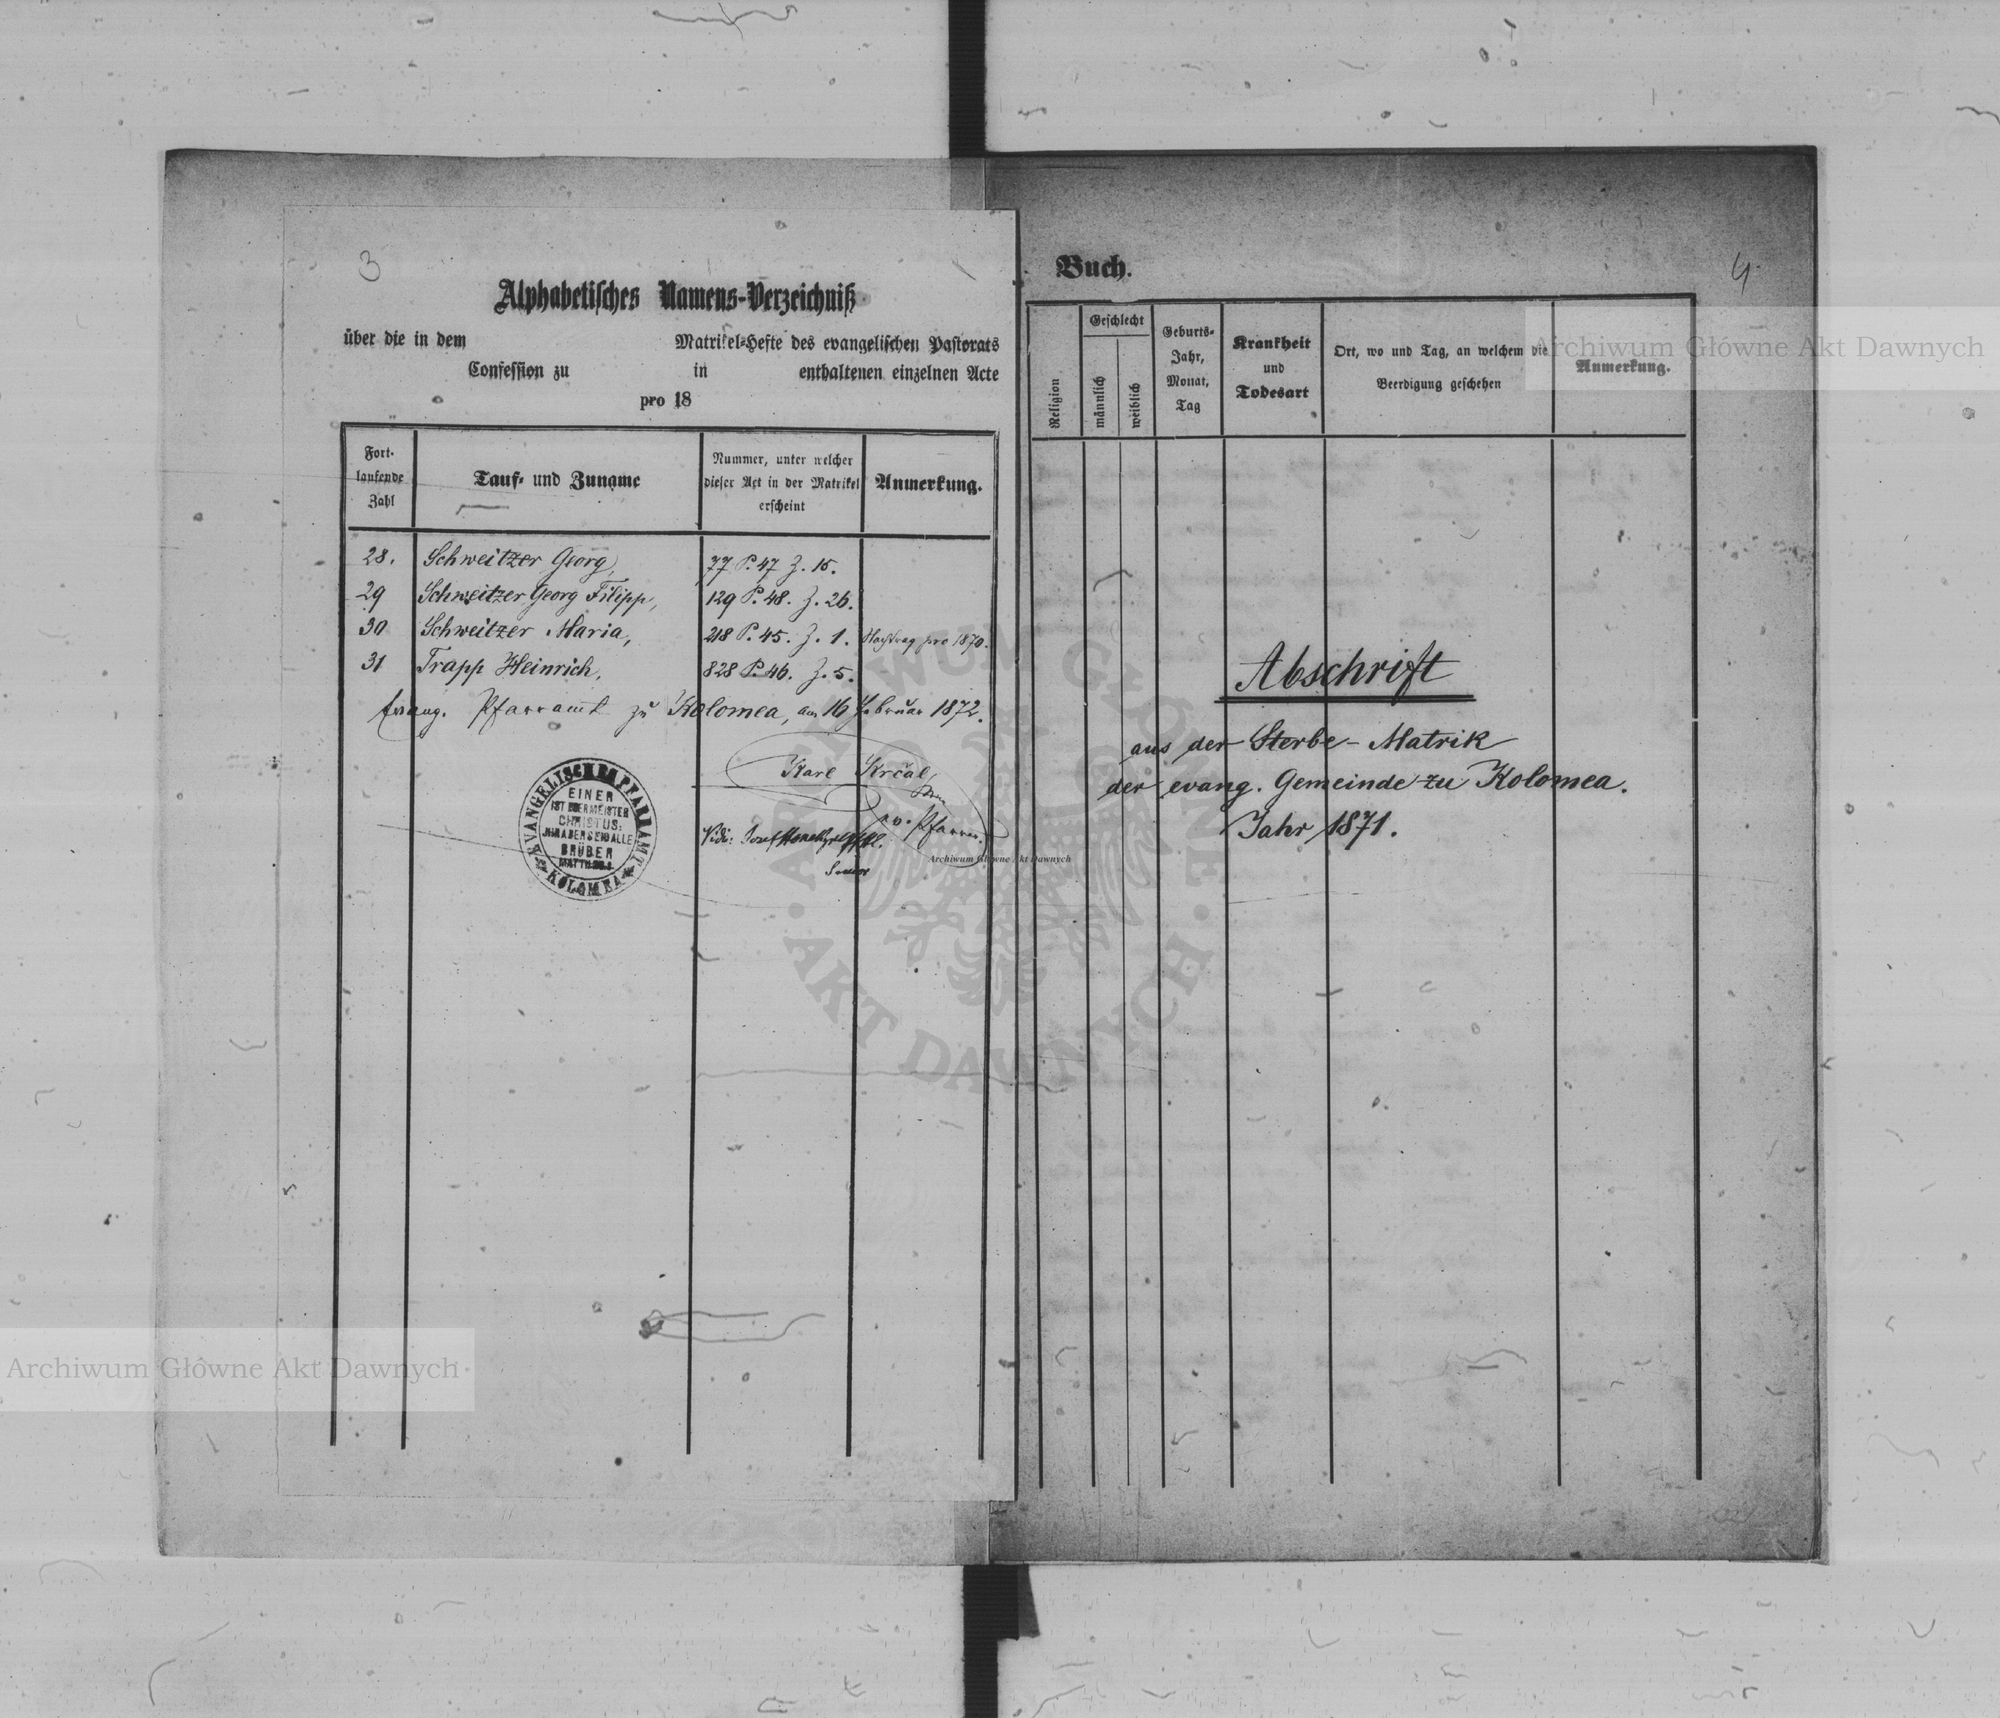 3
Alphabetisches Namens-Verzeichniß
über die in dem Matrikel-Hefte des evangelischen Pastorats
Confession zu in enthaltenen einzelnen Acte
pro 18
Fort-
laufende
Zahl
Tauf- und Zuname
Nummer, unter welcher
dieser Act in der Matrikel
erscheint
Anmerkung.
28. Schweitzer Georg, 77 P. 47 Z. 15.
29 Schweitzer Georg Filipp, 129 P. 48. Z. 26.
30 Schweitzer Maria, 218 P. 45. Z. 1. Nachtrag pro 1870.
31 Trapp Heinrich, 828 P. 46. Z. 5.
Evang. Pfarramt zu Kolomea, am 16 Februar 1872.
Karl Krčal,
ev. Pfarrer.
Vidi: Josef
Senior
EVANGELISCHES PFARRAMT
KOLOMEA
EINER
IST EUER MEISTER
CHRISTUS;
IHR ABER SEID ALLE
BRÜDER
Buch.
4.
Religion
Geschlecht
männlich
weiblich
Geburts-
Jahr,
Monat,
Tag
Krankheit
und
Todesart
Ort, wo und Tag, an welchem die
Beerdigung geschehen
Anmerkung.
Abschrift
aus der Sterbe-Matrik
der evang. Gemeinde zu Kolomea.
Jahr 1871.
Archiwum Główne Akt Dawnych
Archiwum Główne Akt Dawnych
Archiwum Główne Akt Dawnych
ARCHIWUM GŁÓWNE · AKT DAWNYCH ·